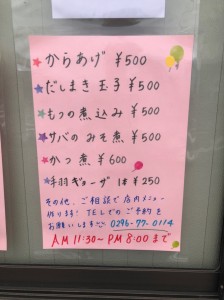 ★からあげ ¥500
★だしまき玉子 ¥500
★もつの煮込み ¥500
★サバのみそ煮 ¥500
★かつ煮 ¥600
★手羽ギョーザ 1本 ¥250
その他、ご相談で店内メニュー
作ります! TELでのご予約を
お願いします 0296-77-0114
AM 11:30~PM 8:00まで